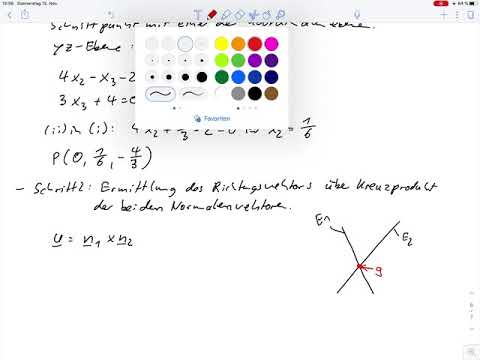 15:56 Donnerstag 12. Nov. 64 %
Schnittpunkt mit einer der
yz-Ebene:
4x₂ - x₃ - 2
3x₃ + 4 = 0
(ii) in (i): 4x₂ + - 2 = 0 x₂ = 1/6
Favoriten
P(0, 1/6, -4/3)
- Schritt 2: Ermittlung des Richtungsvektors über Kreuzprodukt
der beiden Normalenvektoren.
u = n₁ × n₂
E1
E2
g
6
7